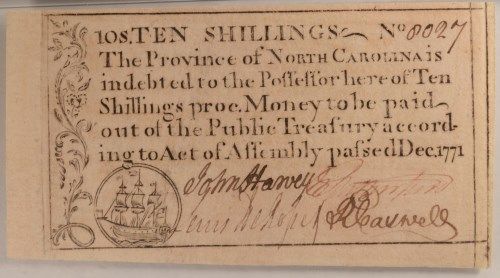 10S. TEN SHILLINGS No 8027
The Province of NORTH CAROLINA is
indebted to the Possessor here of Ten
Shillings proc. Money to be paid
out of the Public Treasury accord-
ing to Act of Assembly passed Dec. 1771
John Harvey
Lewis DeRosset RCaswell